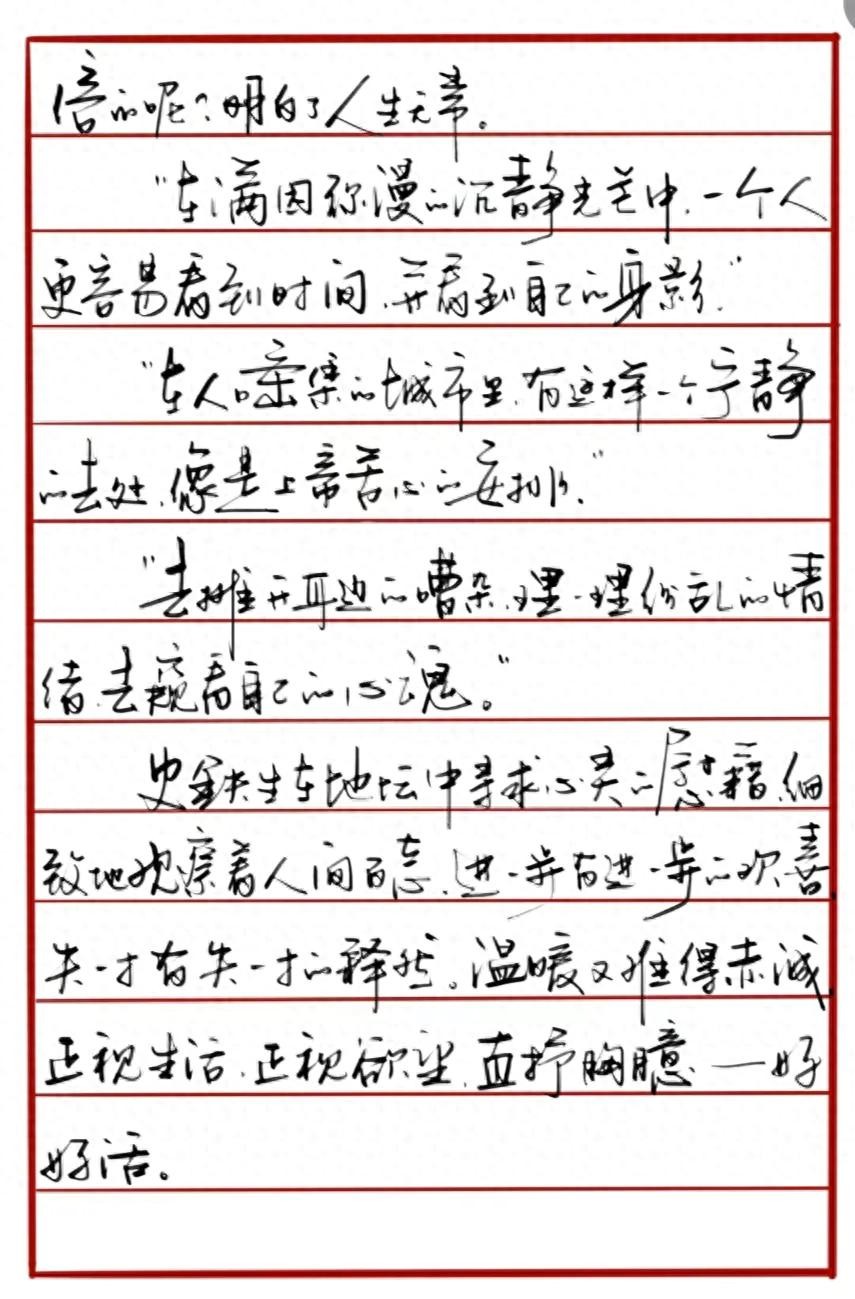 倍的呢?明白了人生无常。
"在满园弥漫的沉静光芒中,一个人
更容易看到时间,并看到自己的身影。"
"在人口密聚的城市里,有这样一个宁静
的去处,像是上帝的苦心安排。"
"去推开耳边的嘈杂,理一理纷乱的情
绪,去窥看自己的心魂。"
史铁生在地坛中寻求心灵的慰藉,细
致地观察着人间百态,进一步有进一步的欢喜,
失一才有失一才的释然。温暖又难得赤诚,
正视生活,正视欲望,直抒胸臆——好
好活。